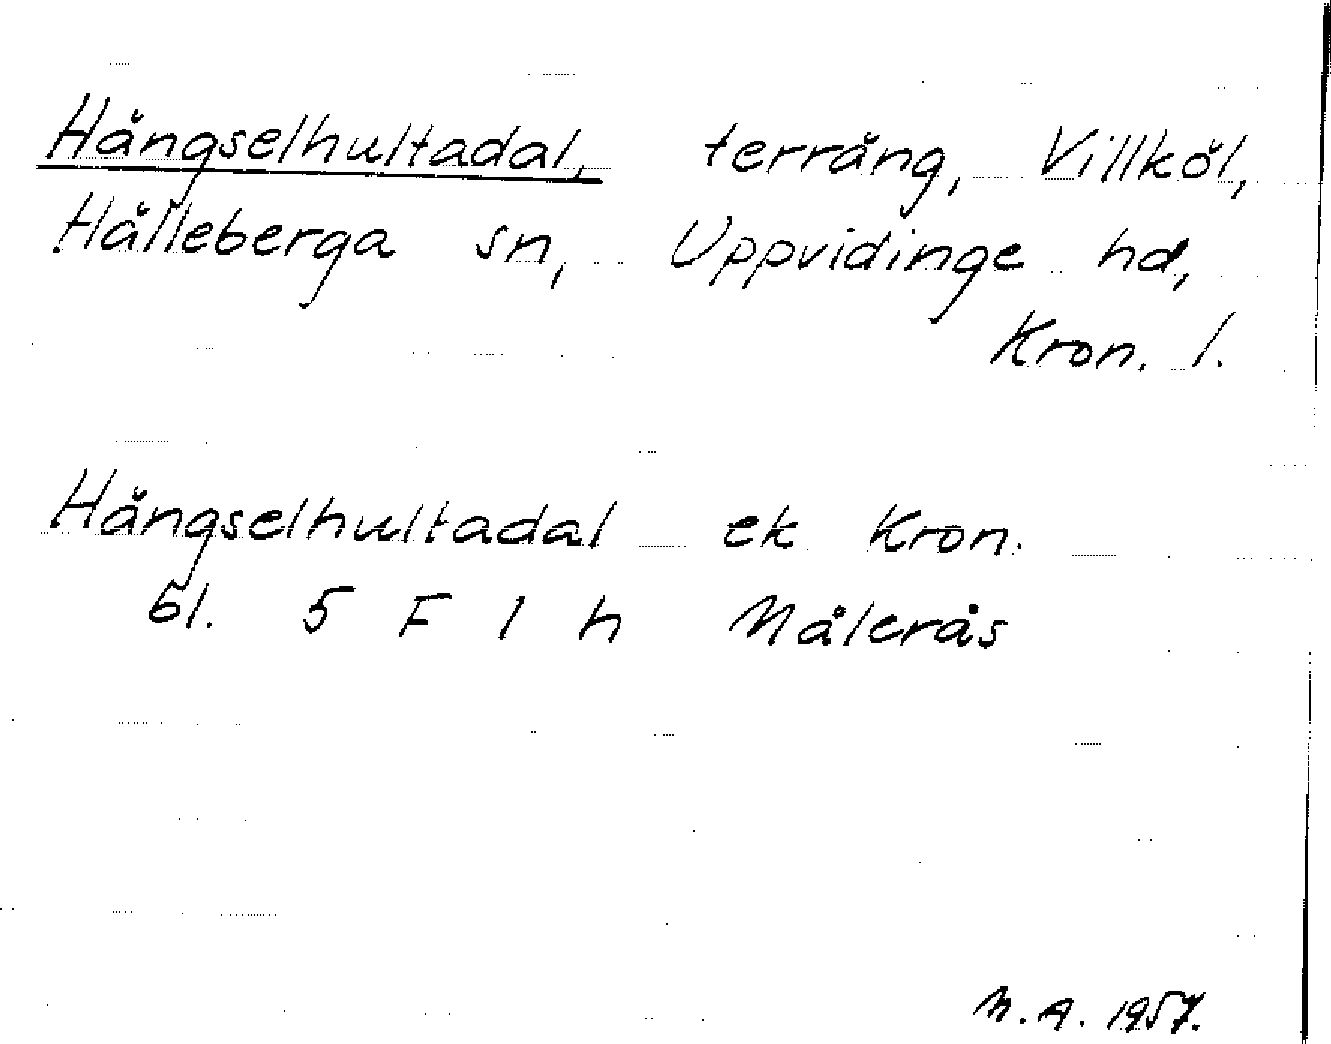 Hängselhultadal, terräng, Villköl,
Hälleberga sn, Uppvidinge hd,
Kron. l.
Hängselhultadal ek Kron.
bl. 5 F 1 h Målerås
M.A. 1957.